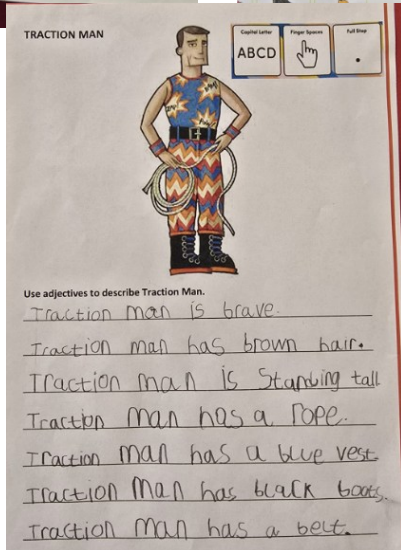 TRACTION MAN
Capital Letter
Finger Spaces
Full Stop
ABCD
.
Use adjectives to describe Traction Man.
Traction man is brave.
Traction man has brown hair.
Traction man is Standing tall
Traction man has a rope.
Traction man has a blue vest.
Traction man has black boots.
Traction man has a belt.